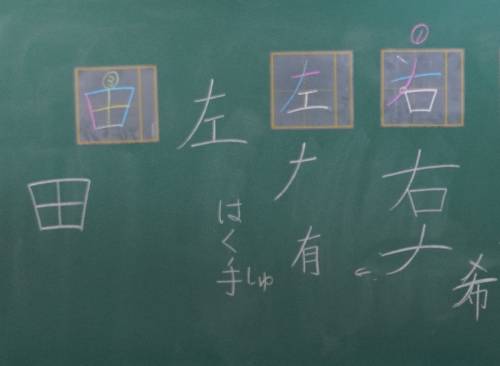 ①
右
右
𠂇
希
左
𠂇
有
左
はく手しゅ
②
田
田